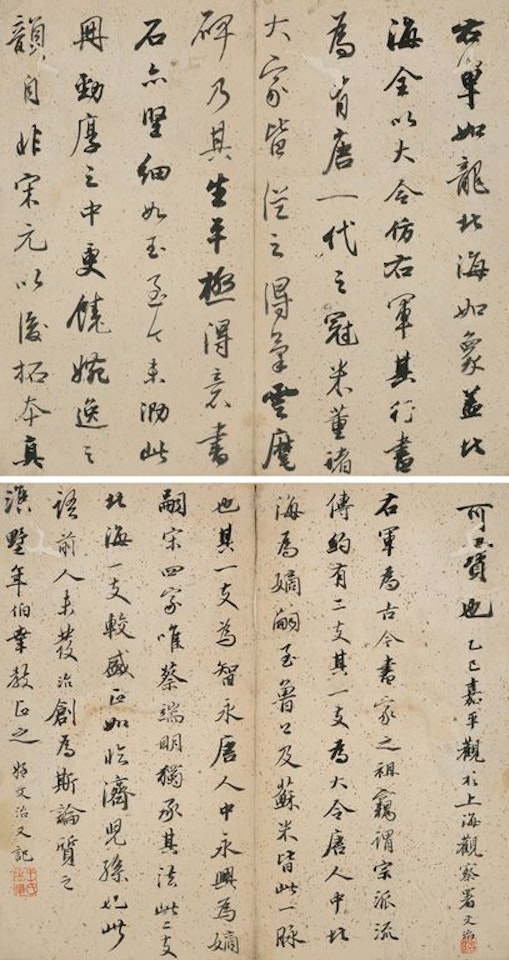 右軍如龍北海如象蓋北
海全以大令仿右軍其行書
為有唐一代之冠米董諸
大家皆從之得筆雲麾
碑乃其生平極得意書
石亦堅細如玉至今未泐此
冊勁厚之中更饒婉逸之
韻自非宋元以後拓本真
可寶也 乙巳嘉平觀於上海觀察署文治
右軍為古今書家之祖竊謂宗派流
傳約有二支其一支為大令唐人中北
海為嫡嗣至魯公及蘇米皆此一脉
也其一支為智永唐人中永興為嫡
嗣宋四家唯蔡端明獨承其法此二支
北海一支較盛正如臨濟兒孫也此
語前人未發治創為斯論質之
墅年伯幸教正之 文治又記